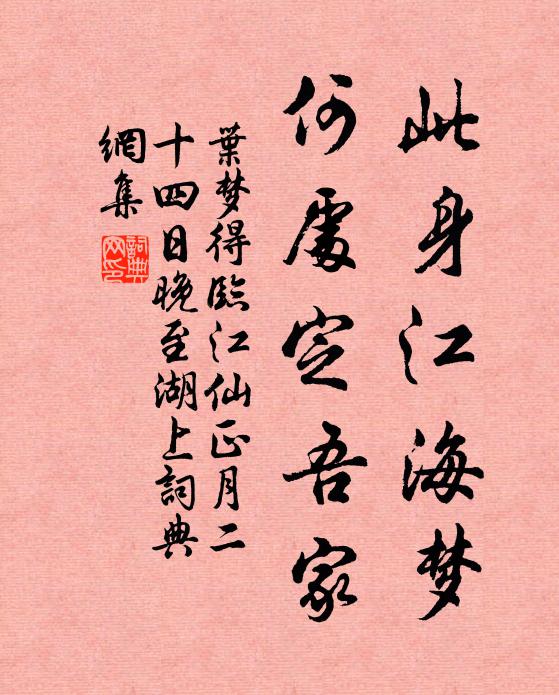 此身江海梦
何處定吾家
葉梦得臨江仙正月二
十四日晚至湖上詞典
網集
詞典
网印